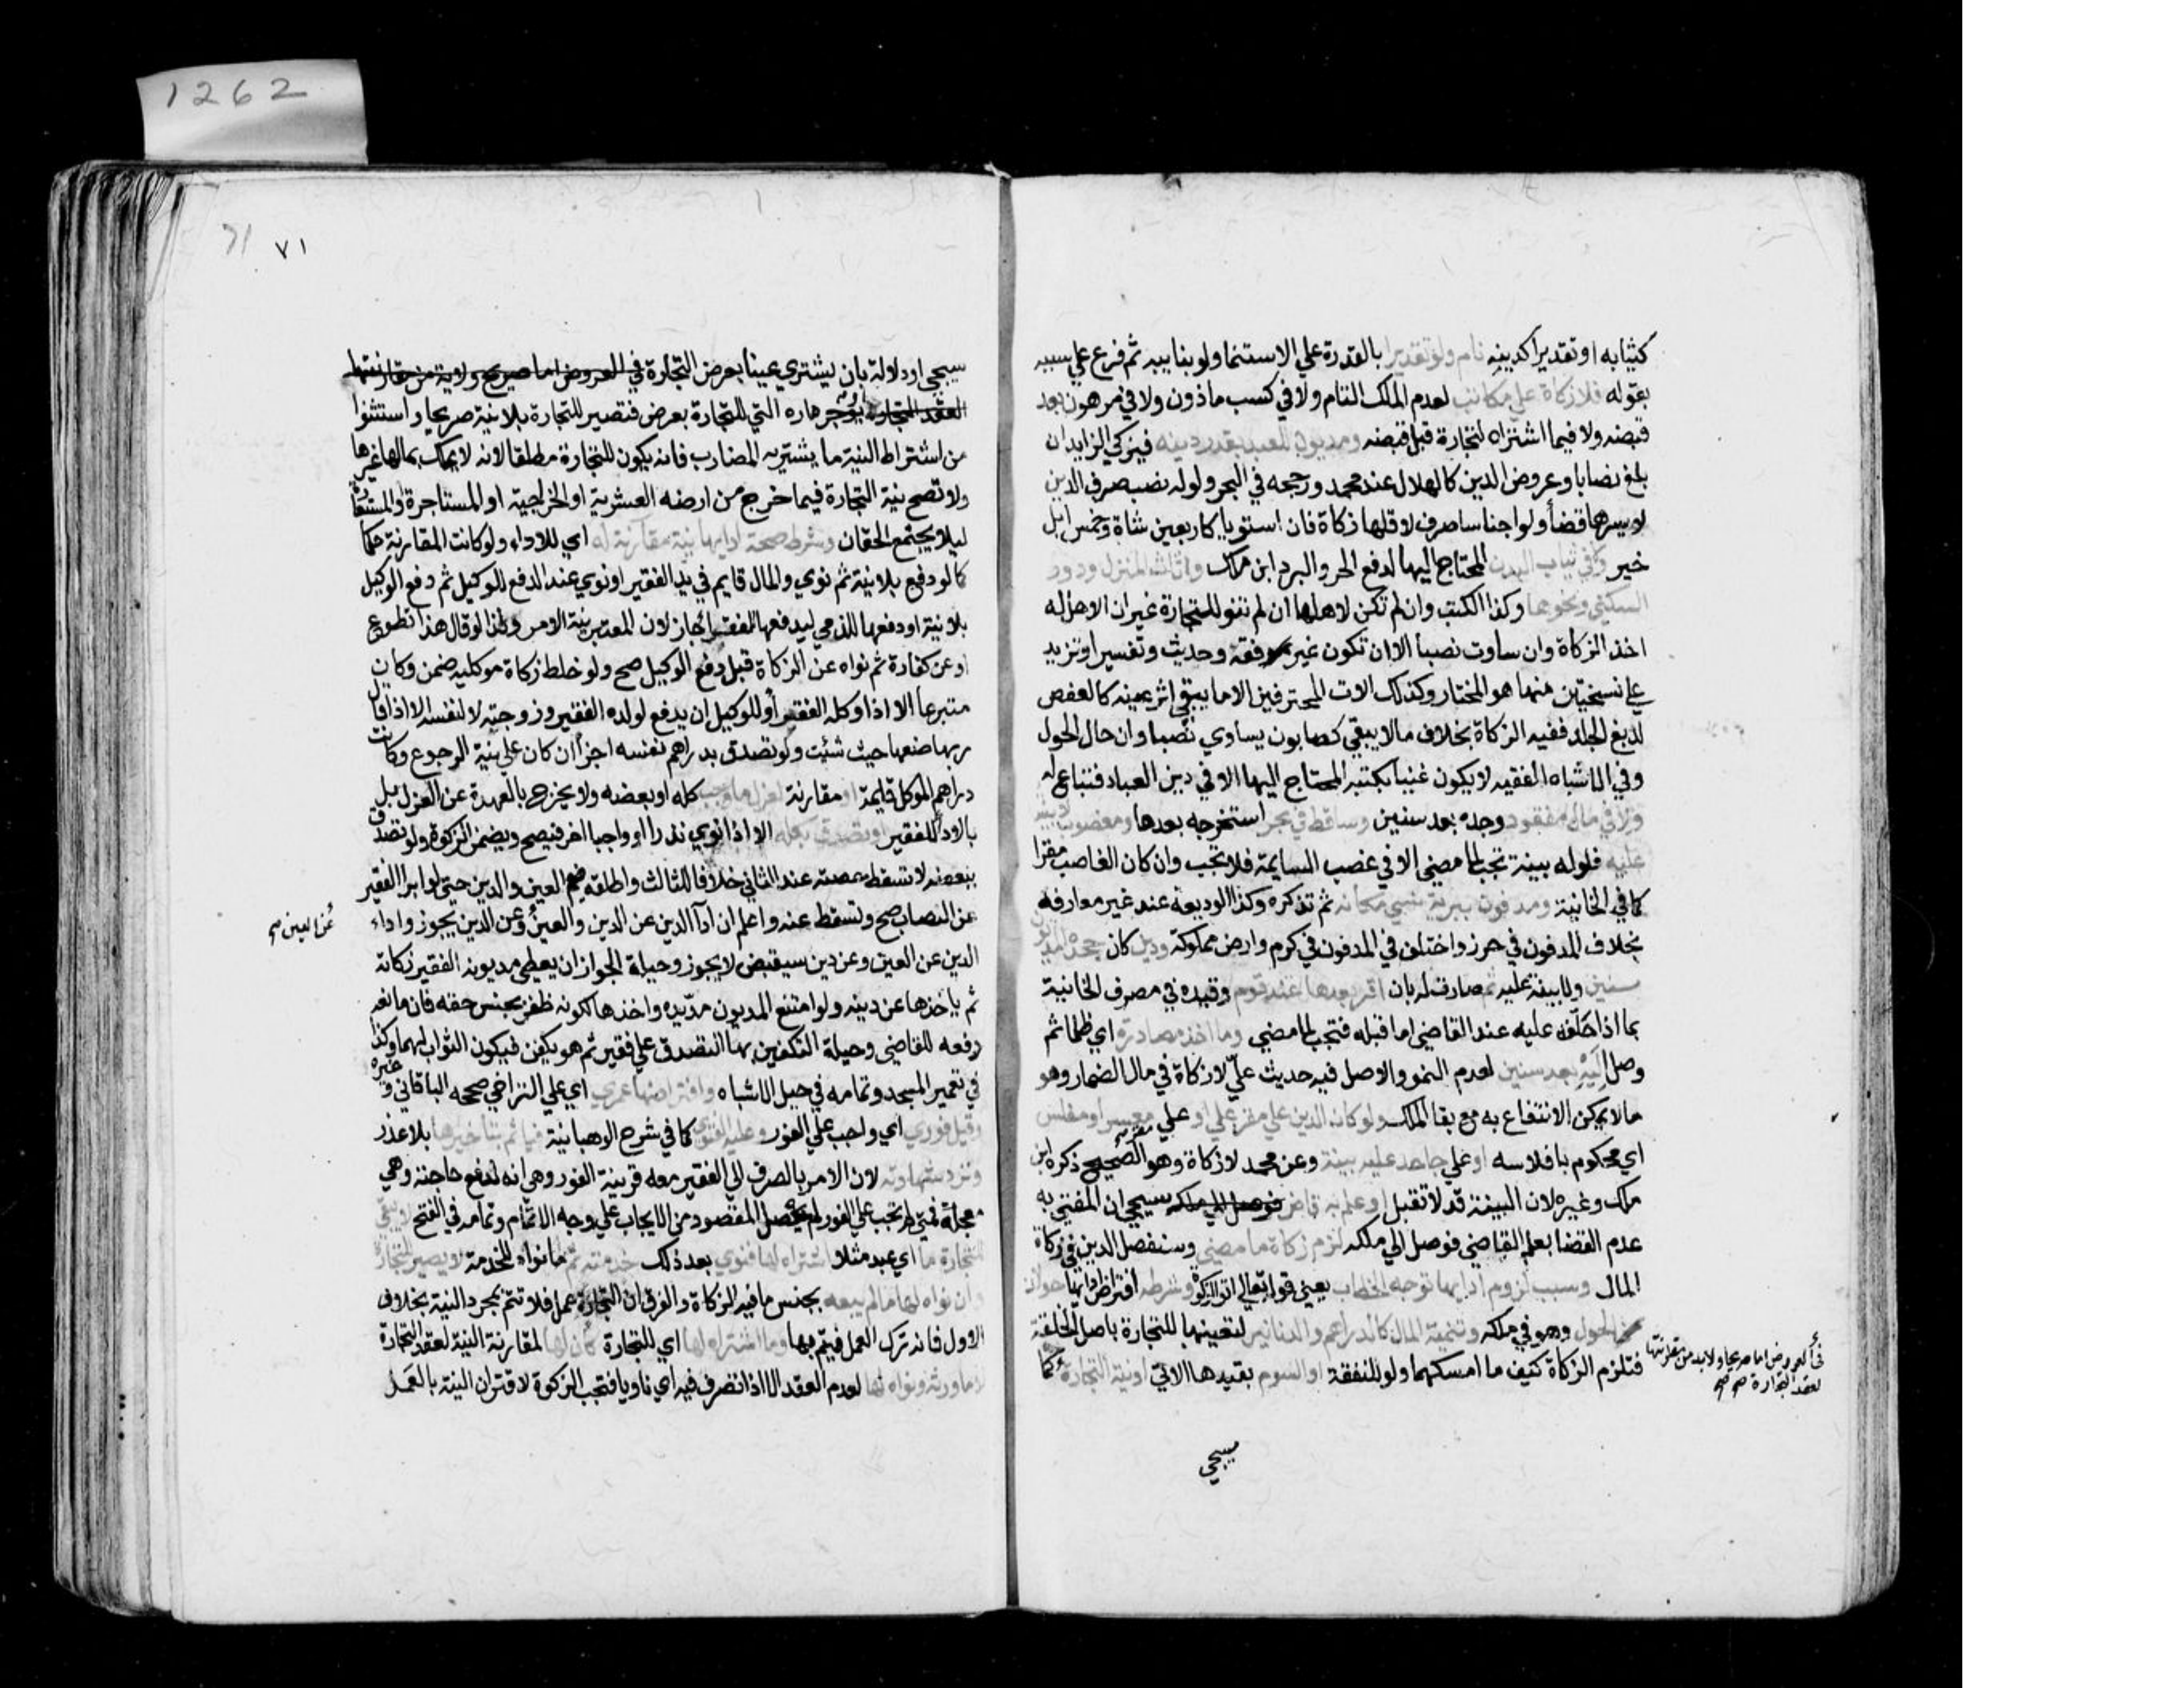 1262
كثيابه او تقديرا كدينه نام ولو تقديرا بالقدرة علي الاستنما ولو بنايبه ثم فرع علي سببه
بقوله فلا زكاة علي مكاتب لعدم الملك التام ولا في كسب ماذون ولا في مرهون بعد
قبضه ولا فيما اشتراه لتجارة قبل قبضه ومديون للعبد بقدر دينه فيزكي الزايد ان
بلغ نصابا وعروض الدين كالهلاك عند محمد ورجحه في البحر ولو له نصب صرف الدين
لايسرها قضاً ولو اجناسا صرف لاقلها زكاة فان استويا كاربعين شاة وخمس ابل
خير ولا في ثياب البدن المحتاج اليها لدفع الحر والبرد ابن ملك واثاث المنزل ودور
السكني ونحوها وكذا الكتب وان لم تكن لاهلها ان لم تنو للتجارة غير ان الاهل له
اخذ الزكاة وان ساوت نصبا الا ان تكون غير فقه وحديث وتفسير او تزيد
علي نسختين منها هو المختار وكذلك الات المحترفين الا ما يبقي اثر عينه كالعفص
لدبغ الجلد ففيه الزكاة بخلاف مالا يبقي كصابون يساوي نصبا وان حال الحول
وفي الاشباه الفقيه لا يكون غنيا بكتبه المحتاج اليها الا في دين العباد فتباع له
ولا في مال مفقود وجده بعد سنين وساقط في بحر استخرجه بعدها ومغصوب لا بينة
عليه فلو له بينة تجب لما مضي الا في غصب السايمة فلا تجب وان كان الغاصب مقرا
كما في الخانية ومدفون ببرية نسي مكانه ثم تذكره وكذا الوديعة عند غير معارفه
بخلاف المدفون في حرز واختلف في المدفون في كرم وارض مملوكة ودين كان جحده المديون
سنين ولا بينة عليه ثم صارت له بان اقر بعدها عند قوم وقيده في مصرف الخانية
بما اذا حلف عليه عند القاضي اما قبله فتجب لما مضي وما اخذ مصادرة اي ظلما ثم
وصل اليه بعد سنين لعدم النمو والاصل فيه حديث علي لا زكاة في مال الضمار وهو
مالا يمكن الانتفاع به مع بقا الملك ولو كان الدين علي مقر ملي او علي معسر او مفلس
اي محكوم بافلاسه او علي جاحد عليه بينة وعن محمد لا زكاة وهو الصحيح ذكره ابن
ملك وغيره لان البينة قد لا تقبل او علم به قاض فوصل الي ملكه سيجي ان المفتي به
عدم القضا بعلم القاضي فوصل الي ملكه لزم زكاة ما مضي وسنفصل الدين في زكاة
المال وسبب لزوم ادايها توجه الخطاب يعني قوله تعالي اتوا الزكوة وشرطه افتراض ادايها حولان
الحول وهو في ملكه وتنمية المال كالدراهم والدنانير لتعينهما للتجارة باصل الخلقة
فتلزم الزكاة كيف ما امسكهما ولو للنفقة او السوم بقيدها الاتي او نية التجارة كما
في العروض اما صريحا ولا بد من مقارنتها
لعقد التجارة صح صح
سيجي
٧١
71
سيجي او دلالة بان يشتري عينا بعرض التجارة في العروض اما صريح ولا بد من مقارنتها
لعقد التجارة او يؤجر داره التي للتجارة بعرض فتصير للتجارة بلا نية صريحا واستثنوا
من اشتراط النية ما يشتريه المضارب فانه يكون للتجارة مطلقا لانه لا يملك بمالها غيرها
ولا تصح نية التجارة فيما خرج من ارضه العشرية او الخراجية او المستاجرة والمستعارة
ليلا يجتمع الحقان وشرط صحة ادايها نية مقارنة له اي للاداء ولو كانت المقارنة حكما
كما لو دفع بلا نية ثم نوي والمال قايم في يد الفقير او نوي عند الدفع للوكيل ثم دفع الوكيل
بلا نية او دفعها للذمي ليدفعها للفقرا جاز لان المعتبر نية الامر ولذا لو قال هذا تطوع
او عن كفارة ثم نواه عن الزكاة قبل دفع الوكيل صح ولو خلط زكاة موكليه ضمن وكان
متبرعا الا اذا وكله الفقير او للوكيل ان يدفع لولده الفقير وزوجته لا لنفسه الا اذا قال
ربها ضعها حيث شئت ولو تصدق بدراهم نفسه اجزأ ان كان علي نية الرجوع وكانت
دراهم الموكل قايمة او مقارنة لعزل ما وجب كله او بعضه ولا يخرج بالعهدة عن العزل بل
بالاداء للفقير او تصدق بكله الا اذا نوي نذرا او واجبا اخر فيصح ويضمن الزكوة ولو تصدق
ببعضه لا تسقط حصته عند الثاني خلافا للثالث واطلقه فعم العين والدين حتي لو ابرا الفقير
عن النصاب صح وتسقط عنه واعلم ان ادآ الدين عن الدين والعين وعن الدين يجوز واداء
عن العين صح
الدين عن العين وعن دين سيقبض لا يجوز وحيلة الجواز ان يعطي مديونه الفقير زكاته
ثم ياخذها عن دينه ولو امتنع المديون مد يده واخذها لكونه ظفر بجنس حقه فان مانعه
رفعه للقاضي وحيلة التكفين بها التصدق علي فقير ثم هو يكفن فيكون الثواب لهما وكذا
في تعمير المسجد وتمامه في حيل الاشباه وافتراضها عمري اي علي التراخي صححه الباقاني وغيره
وقيل فوري اي واجب علي الفور وعليه الفتوي كما في شرح الوهبانية فياثم بتاخيرها بلا عذر
وترد شهادته لان الامر بالصرف الي الفقير معه قرينة الفور وهي انه لدفع حاجته وهي
معجلة فمتي لم تجب علي الفور لم يحصل المقصود من الايجاب علي وجه الاتمام وتمامه في الفتح لا يبقي
للتجارة ما اي عبد مثلا اشتراه لها فنوي بعد ذلك خدمته ثم ما نواه للخدمة لا يصير للتجارة
وان نواه لها ما لم يبعه بجنس ما فيه الزكاة والفرق ان التجارة عمل فلا تتم بمجرد النية بخلاف
الاول فانه ترك العمل فيتم بها وما اشتراه لها اي للتجارة كان لها لمقارنة النية لعقد التجارة
لا ما ورثه ونواه لها لعدم العقد الا اذا تصرف فيه اي ناويا فتجب الزكوة لاقتران النية بالعمل